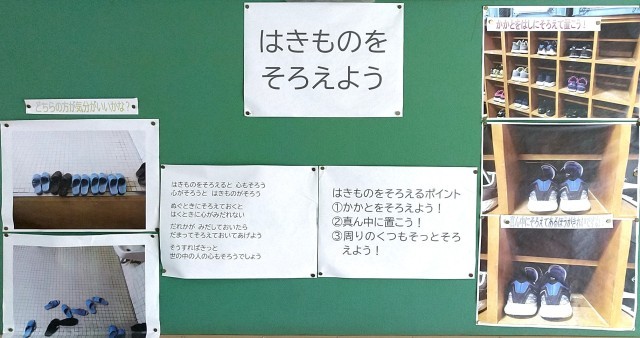 はきものを
そろえよう
どちらの方が気分がいいかな？
はきものをそろえると 心もそろう
心がそろうと はきものがそろう
ぬぐときにそろえておくと
はくときに心がみだれない
だれかが みだしておいたら
だまってそろえておいてあげよう
そうすればきっと
世の中の人の心もそろうでしょう
はきものをそろえるポイント
①かかとをそろえよう！
②真ん中に置こう！
③周りのくつもそっとそろ
えよう！
かかとをはしにそろえて置こう！